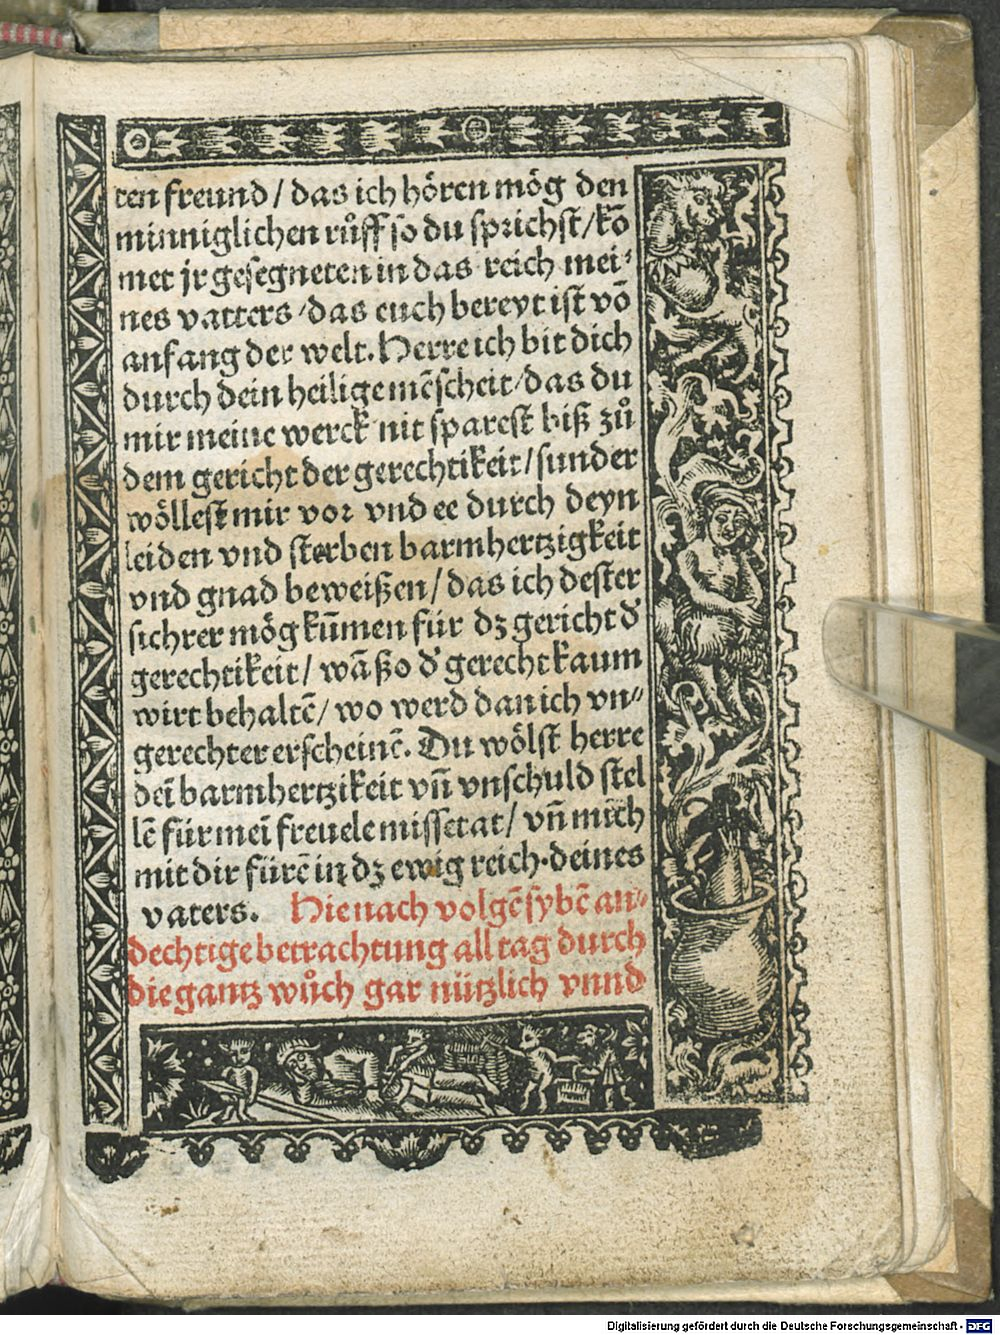 ten freund / das ich hören mög den
minniglichen růff so du sprichst / kō
met jr gesegneten in das reich mei-
nes vatters / das euch bereyt ist vō
anfang der welt. Herre ich bit dich
durch dein heilige mēscheit / das du
mir meine werck nit sparest biß zů
dem gericht der gerechtikeit / sunder
wöllest mir vor vnd ee durch deyn
leiden vnd sterben barmhertzigkeit
vnd gnad beweißen / das ich dester
sichrer mög kūmen für dz gericht d'
gerechtikeit / wā ßo d' gerecht kaum
wirt behaltē / wo werd dan ich vn-
gerechter erscheinē. Du wölst herre
deī barmhertzikeit vn̄ vnschuld stel
lē für meī freuele missetat / vn̄ mich
mit dir fürē in dz ewig reich · deines
vaters. Hienach volgē sybē an-
dechtige betrachtung all tag durch
die gantz wůch gar nützlich vnnd
Digitalisierung gefördert durch die Deutsche Forschungsgemeinschaft - DFG